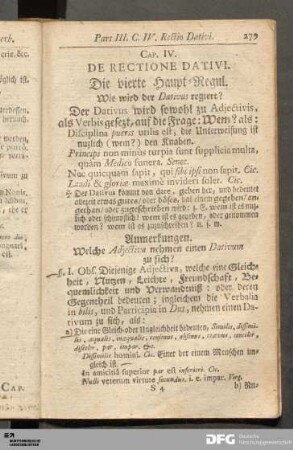 Pars III. C. IV. Rectio Dativi. 279
CAP. IV.
DE RECTIONE DATIVI.
Die vierte Haupt-Regul.
Wie wird der Dativus regiert?
Der Dativus wird sowohl zu Adjectivis,
als Verbis gesezt, auf die Frage: Wem? als:
Disciplina pueris utilis est; die Unterweisung ist
nutzlich (wem?) den Knaben.
Principi non minus turpia sunt supplicia multa,
quàm Medico funera. Senec.
Nec quicquam sapit, qui sibi ipsi non sapit. Cic.
Laudi & gloriæ maximè invideri solet. Cic.
Der Dativus kommt von dare, geben her, und bedeutet
allzeit etwas gutes/ oder böses, das einem gegeben/
gethan/ oder zugeschrieben wird: z. E. wem ist es nutz-
lich oder schimpflich? wem ist es geben, oder genommen
worden? wem ist es zuzuschreiben? u. s. w.
Anmerkungen.
Welche Adjectiva nehmen einen Dativum
zu sich?
§. 1. Obs. Diejenige Adjectiva, welche eine Gleich-
heit, Nutzen, Leichte, Freundschaft, Be-
quemlichkeit und Verwandniß: oder deren
Gegentheil bedeuten; ingleichen die Verbalia
in bilis, und Participia in Dus, nehmen einen Da-
tivum zu sich, als:
a) Die eine Gleich- oder Ungleichheit bedeuten, Similis, dissimi-
lis, æqualis, inæqualis,
discolor, par, impar, &c.
Dissimilis homini. Cic. Einer der einem Menschen un-
gleich ist.
In amicitia superior par est inferiori. Cic.
Nulli veterum virtute secundus, i. e. impar. Virg.
S 4 b) Nu-
CAP.
DFG DEUTSCHE FORSCHUNGSGEMEINSCHAFT